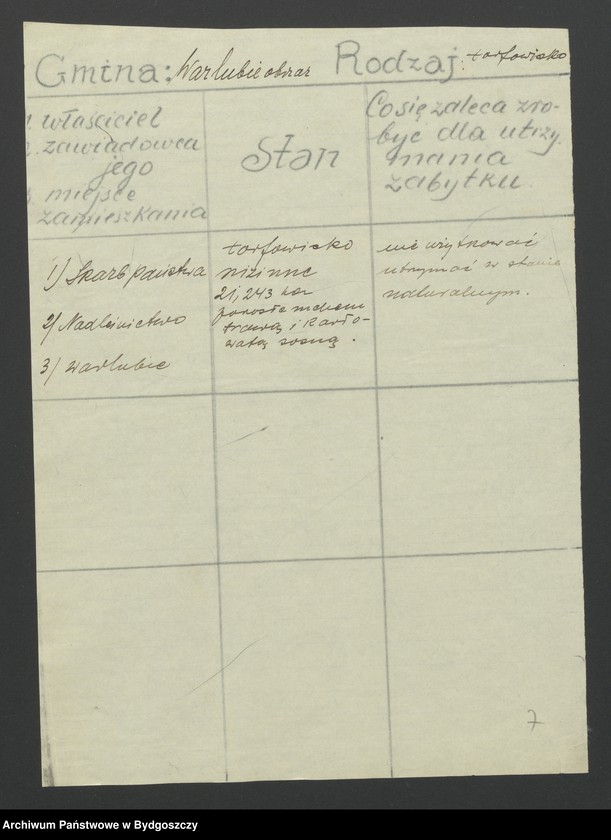 Gmina: Warlubie obszar Rodzaj: torfowisko
właściciel
zawiadowca
jego
miejsce
zamieszkania
Stan
Co się zaleca zro-
być dla utrzy
mania
zabytku.
1) Skarb państwa
2) Nadleśnictwo
3) Warlubie
torfowisko
nizinne
21,243 ha
porosłe mchem
trawą i karło-
watą sosną.
nie użytkować
utrzymać w stanie
naturalnym.
7
Archiwum Państwowe w Bydgoszczy